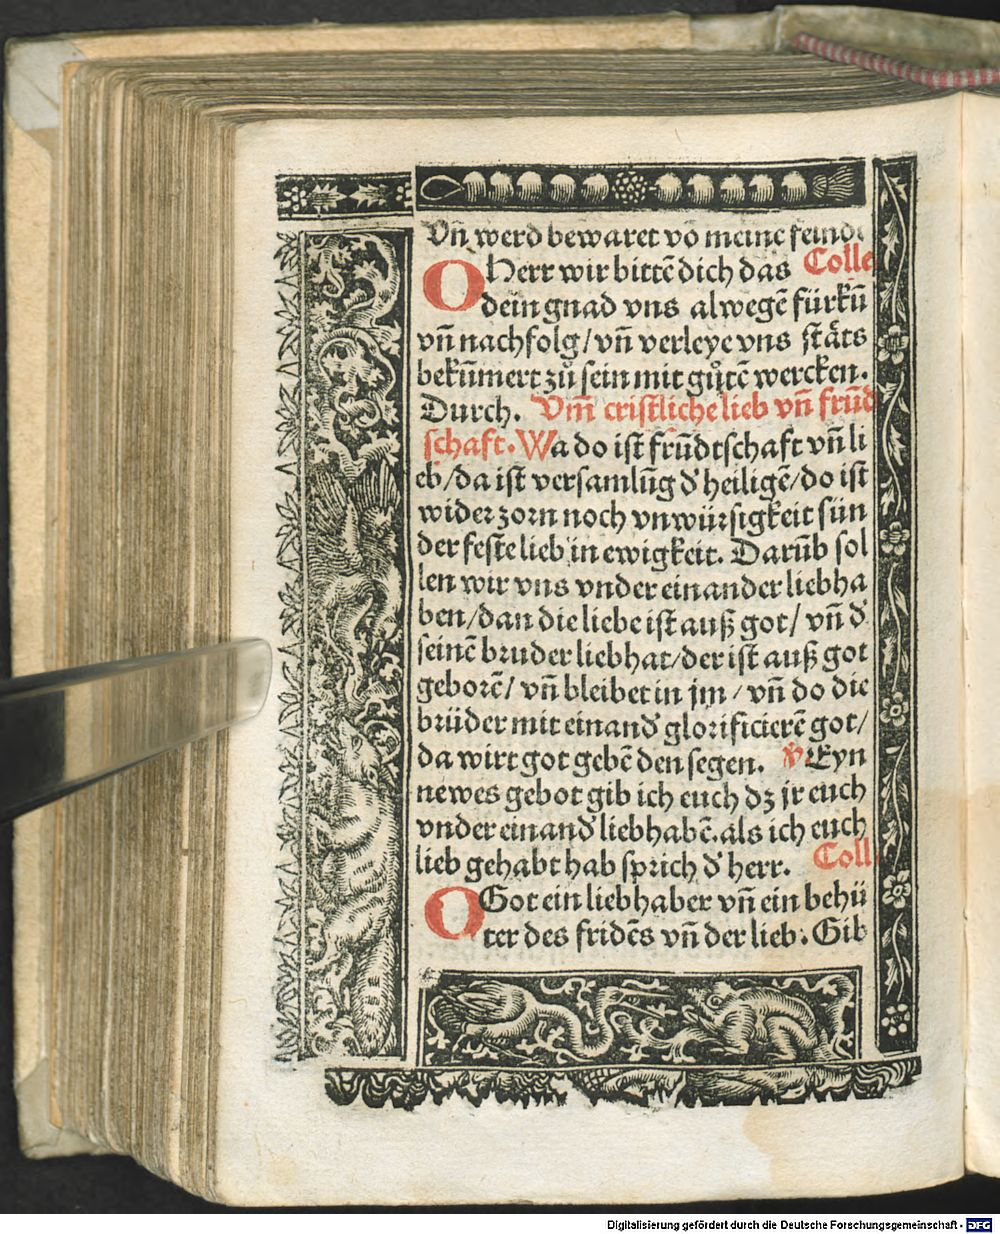 Vñ werd bewaret võ meine feinde
O Herr wir bittẽ dich das Colle
dein gnad vns alwegẽ fürkũ
vñ nachfolg/vñ verleye vns stäts
bekũmert zů sein mit gůtẽ wercken.
Durch. Vm̃ cristliche lieb vñ frũd
schaft. Wa do ist frũdtschaft vñ li
eb/da ist versamlũg d' heiligẽ/do ist
wider zorn noch vnwürsigkeit sün
der feste lieb in ewigkeit. Darũb sol
len wir vns vnder einander liebha
ben/dan die liebe ist auß got/vñ d'
seinẽ bruder liebhat/der ist auß got
geborẽ/vñ bleibet in jm/vñ do die
brüder mit einand' glorificierẽ got/
da wirt got gebẽ den segen. V. Eyn
newes gebot gib ich euch dz jr euch
vnder einand' liebhabẽ. als ich euch
lieb gehabt hab sprich d' herr. Coll
O Got ein liebhaber vñ ein behü
ter des fridẽs vñ der lieb. Gib
Digitalisierung gefördert durch die Deutsche Forschungsgemeinschaft - DFG